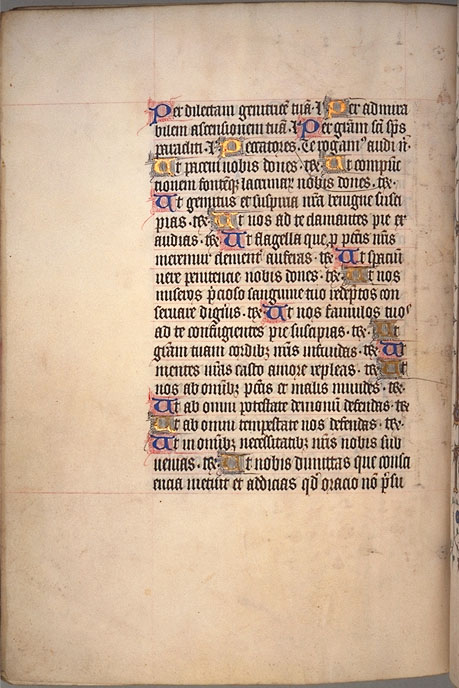 Per dilectam genitricē tuā. I Per admira
bilem ascensionem tuā. I Per grām sci sps
paracliti. I Peccatores. Te rogam⁹ audi n̄.
Ut pacem nobis dones. te Ut compūc
tionem fontēq; lacrimaꝝ nobis dones. te.
Ut gemitus et suspiria nrā benigne susci
pias. te. Ut nos ad te clamantes pie ex
audias. te Ut flagella que p pctīs nrīs
meremur clement̄ auferas. te Ut spaciū
uere penitencie nobis dones. te Ut nos
miseros p̄cioso sanguine tuo redēptos con
seruare digīns. te. Ut nos famulos tuos
ad te confugientes pie suscipias. te. Ut
grām tuam cordibꝫ nrīs infundas. te Ut
mentes nrās casto amore repleas. te Ut
nos ab omībꝫ pctīs et malis mundes. te
Ut ab omni potestate demonū defendas. te
Ut ab omni tempestate nos defendas. te
Ut in omībꝫ necessitatibꝫ nrīs nobis sub
uenias. te. Ut nobis dimittas que consci
encia metuit et addicias qd̄ oracio nō p̄su